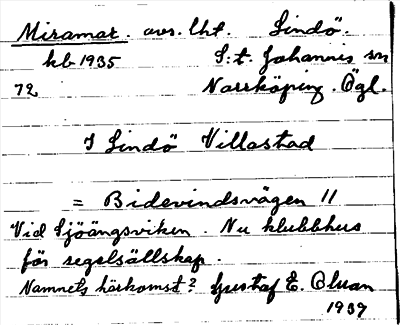 Miramar. avs. lht. Lindö.
kb 1935 S:t Johannis sn
72 Norrköping. Ögl.
I Lindö Villastad
= Bidevindsvägen 11
Vid Sjöängsviken. Nu klubbhus
för segelsällskap.
Namnets härkomst? Gustaf E.
1939